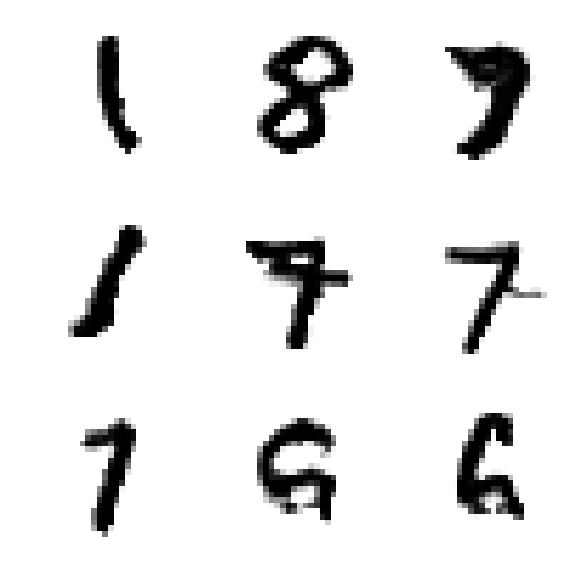 1 8 7
1 7 7
1 6 6